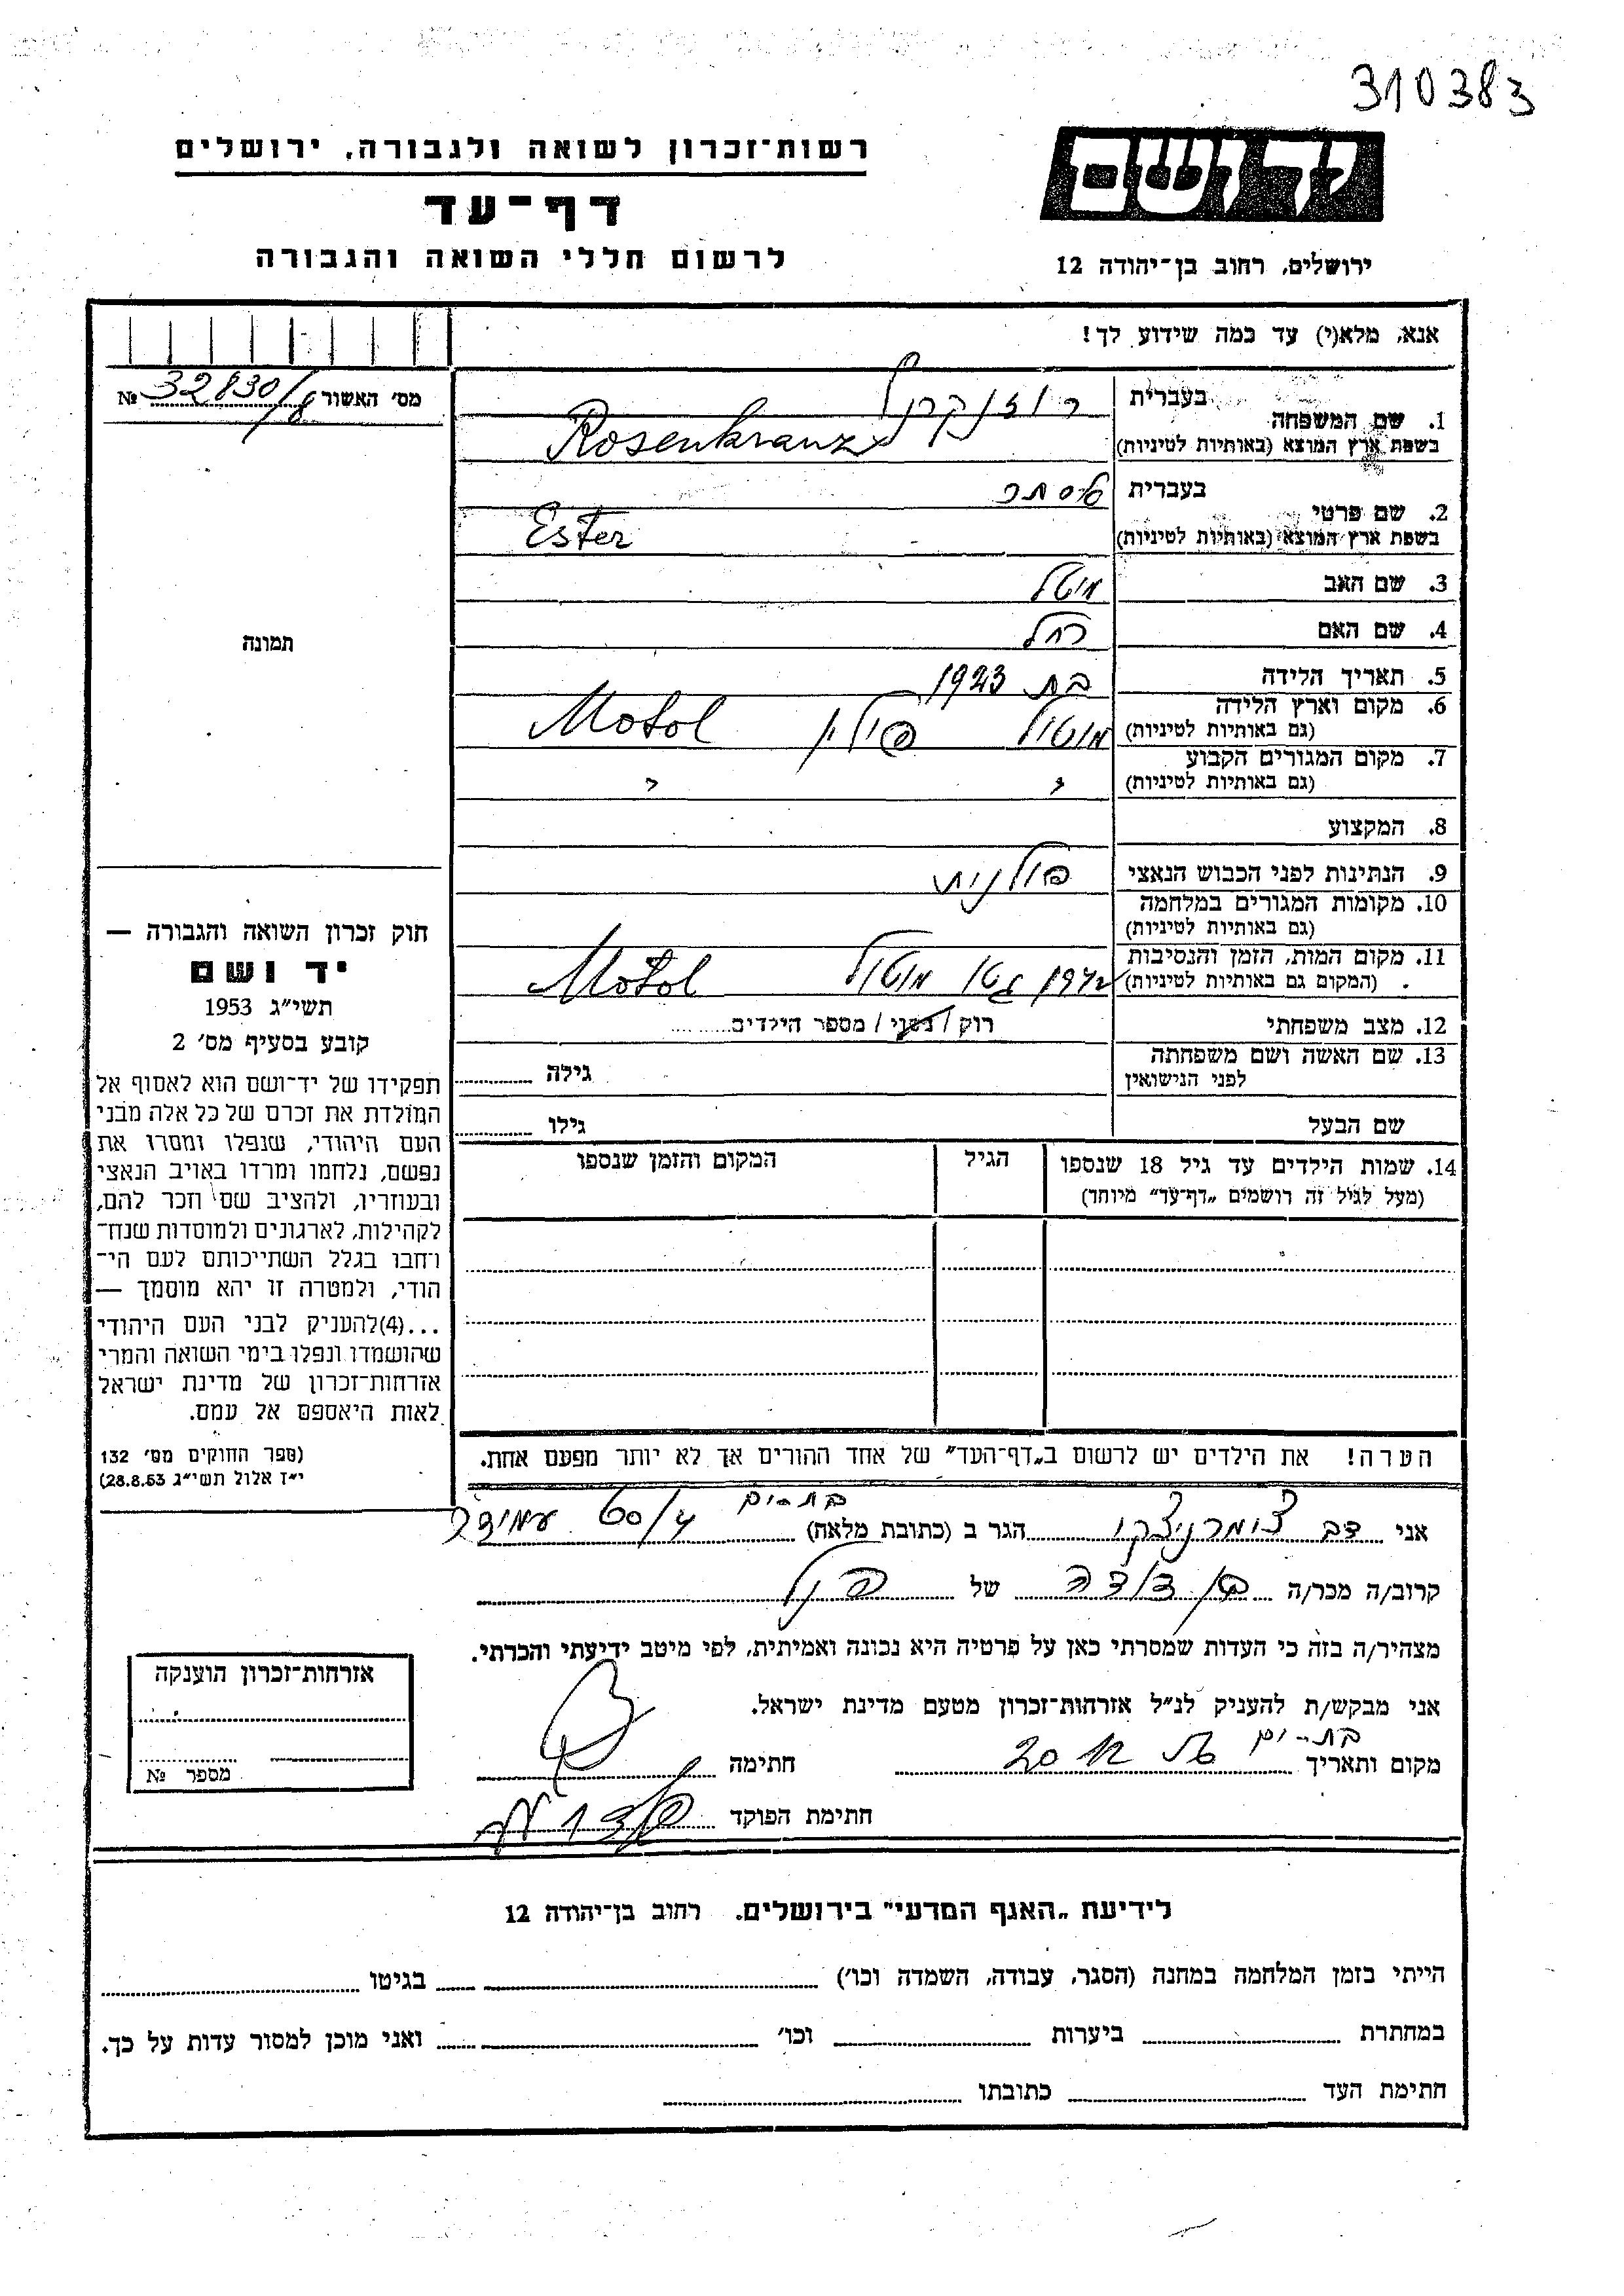 310383
יד ושם
רשות־זכרון לשואה ולגבורה, ירושלים
דף־עד
לרשום חללי השואה והגבורה
ירושלים, רחוב בן־יהודה 12
אנא, מלא(י) עד כמה שידוע לך!
מס׳ האשור 32830/8 №
1. שם המשפחה בעברית רוזנקרנץ
בשפת ארץ המוצא (באותיות לטיניות) Rosenkranz
2. שם פרטי בעברית אסתר
בשפת ארץ המוצא (באותיות לטיניות) Ester
3. שם האב מוטל
4. שם האם רחל
תמונה
5. תאריך הלידה בת 1923
6. מקום וארץ הלידה מוטול פולין Motol
(גם באותיות לטיניות)
7. מקום המגורים הקבוע
(גם באותיות לטיניות) " "
8. המקצוע
9. הנתינות לפני הכבוש הנאצי פולנית
10. מקומות המגורים במלחמה
(גם באותיות לטיניות)
11. מקום המות, הזמן והנסיבות
(המקום גם באותיות לטיניות) 1942 גטו מוטול Motol
12. מצב משפחתי רוק / נשוי / מספר הילדים
13. שם האשה ושם משפחתה
לפני הנישואין גילה
שם הבעל גילו
14. שמות הילדים עד גיל 18 שנספו הגיל המקום והזמן שנספו
(מעל לגיל זה רושמים „דף־עד״ מיוחד)
חוק זכרון השואה והגבורה —
יד ושם
תשי״ג 1953
קובע בסעיף מס׳ 2
תפקידו של יד־ושם הוא לאסוף אל
המולדת את זכרם של כל אלה מבני
העם היהודי, שנפלו ומסרו את
נפשם, נלחמו ומרדו באויב הנאצי
ובעוזריו, ולהציב שם וזכר להם,
לקהילות, לארגונים ולמוסדות שנח־
רחבו בגלל השתייכותם לעם הי־
הודי, ולמטרה זו יהא מוסמך —
...(4)להעניק לבני העם היהודי
שהושמדו ונפלו בימי השואה והמרי
אזרחות־זכרון של מדינת ישראל
לאות היאספם אל עמם.
(ספר החוקים מס׳ 132
י״ז אלול תשי״ג 28.8.53)
הערה! את הילדים יש לרשום ב„דף־העד״ של אחד ההורים אך לא יותר מפעם אחת.
בת-ים
אני דב צומרניצקו הגר ב (כתובת מלאה) 60/4 עמידר
קרוב/ה מכר/ה בן דודה של הנ״ל
מצהיר/ה בזה כי העדות שמסרתי כאן על פרטיה היא נכונה ואמיתית, לפי מיטב ידיעתי והכרתי.
אני מבקש/ת להעניק לנ״ל אזרחות־זכרון מטעם מדינת ישראל.
בת-ים
מקום ותאריך 20 חתימה
חתימת הפוקד
אזרחות־זכרון הוענקה
מספר №
לידיעת „האגף המדעי״ בירושלים. רחוב בן־יהודה 12
הייתי בזמן המלחמה במחנה (הסגר, עבודה, השמדה וכו׳) בגיטו
במחתרת ביערות וכו׳ ואני מוכן למסור עדות על כך.
חתימת העד כתובתו